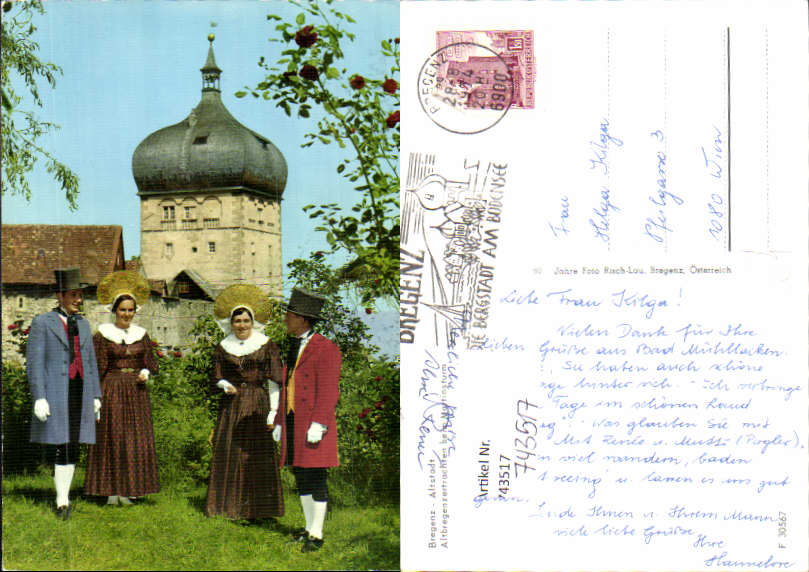 BREGENZ
28.-8
1974
20 H
6900
REPUBLIK ÖSTERREICH
BREGENZ
DIE BERGSTADT AM BODENSEE
Frau
Helga Kilga
Pfeilgasse 3
1080 Wien
50 Jahre Foto Risch-Lau, Bregenz, Österreich
Liebe Frau Kilga!
Vielen Dank für Ihre
lieben Grüße aus Bad Mühllacken.
Sie haben auch schöne
hinter sich. Ich verbringe
Tage im schönen Land
Was glauben Sie mit
Mit Zenzle u. Mutti
viel wandern, baden
u. lassen es uns gut
Ihnen u. Ihrem Mann
viele liebe Grüße
Ihre
Hannelore
Artikel Nr.
743517
743517
Bregenz - Altstadt
Altbregenzertrachten beim Martinsturm
F 30567